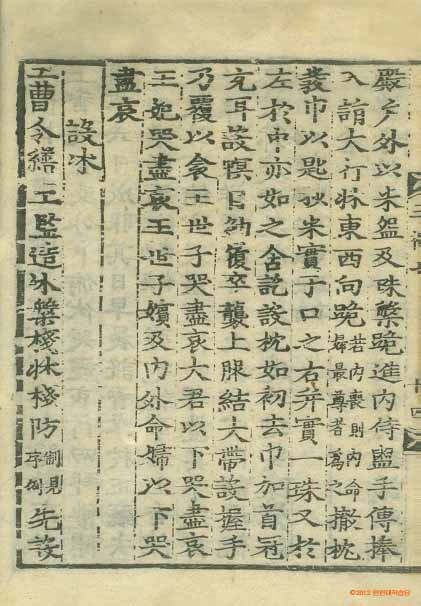 嚴戶外以朱盌及珠槃跪進內侍盥手傳捧
入詣大行牀東西向跪若內喪則內命婦最尊者爲之撤枕
發巾以匙抄米實于口之右幷實一珠又於
左於中亦如之含訖設枕如初去巾加首冠
充耳設瞑目幼履卒襲上服結大帶設握手
乃覆以衾王世子哭盡哀大君以下哭盡哀
王妃哭盡哀王世子嬪及內外命婦以下哭
盡哀
設冰
工曹令繕工監造冰槃棧牀棧防制見序例先設
©2013